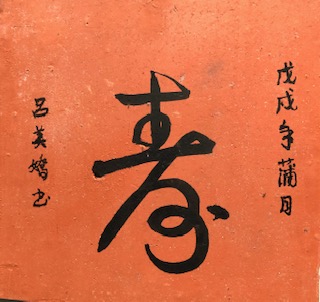 戊戌年蒲月
寿
呂美嬌书